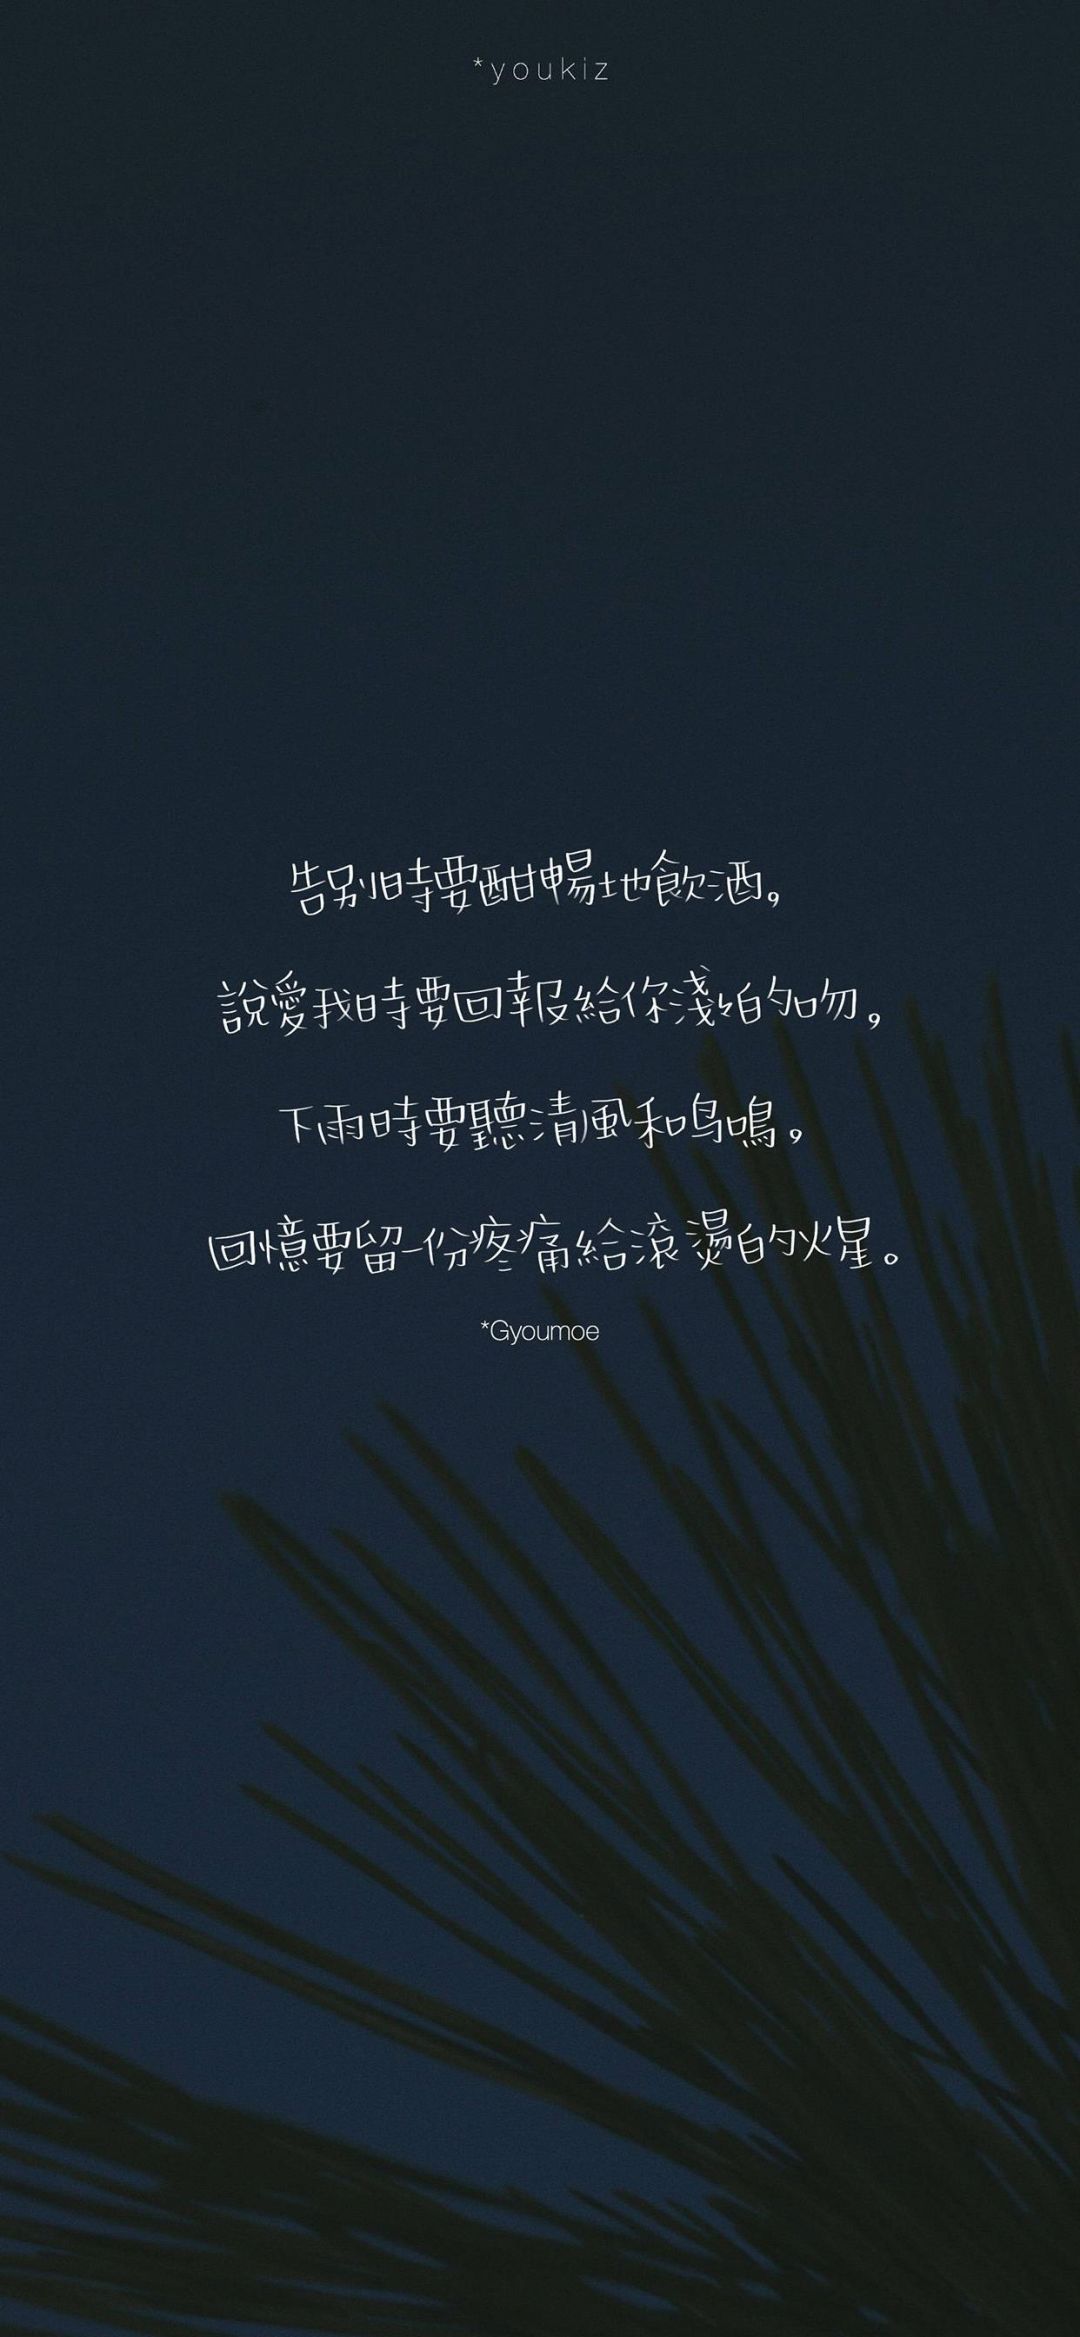 *youkiz
告別時要酣暢地飲酒，
說愛我時要回報給你淺始的吻，
下雨時要聽清風和鸟鳴，
回憶要留一份疼痛給滾燙的火星。
*Gyoumoe